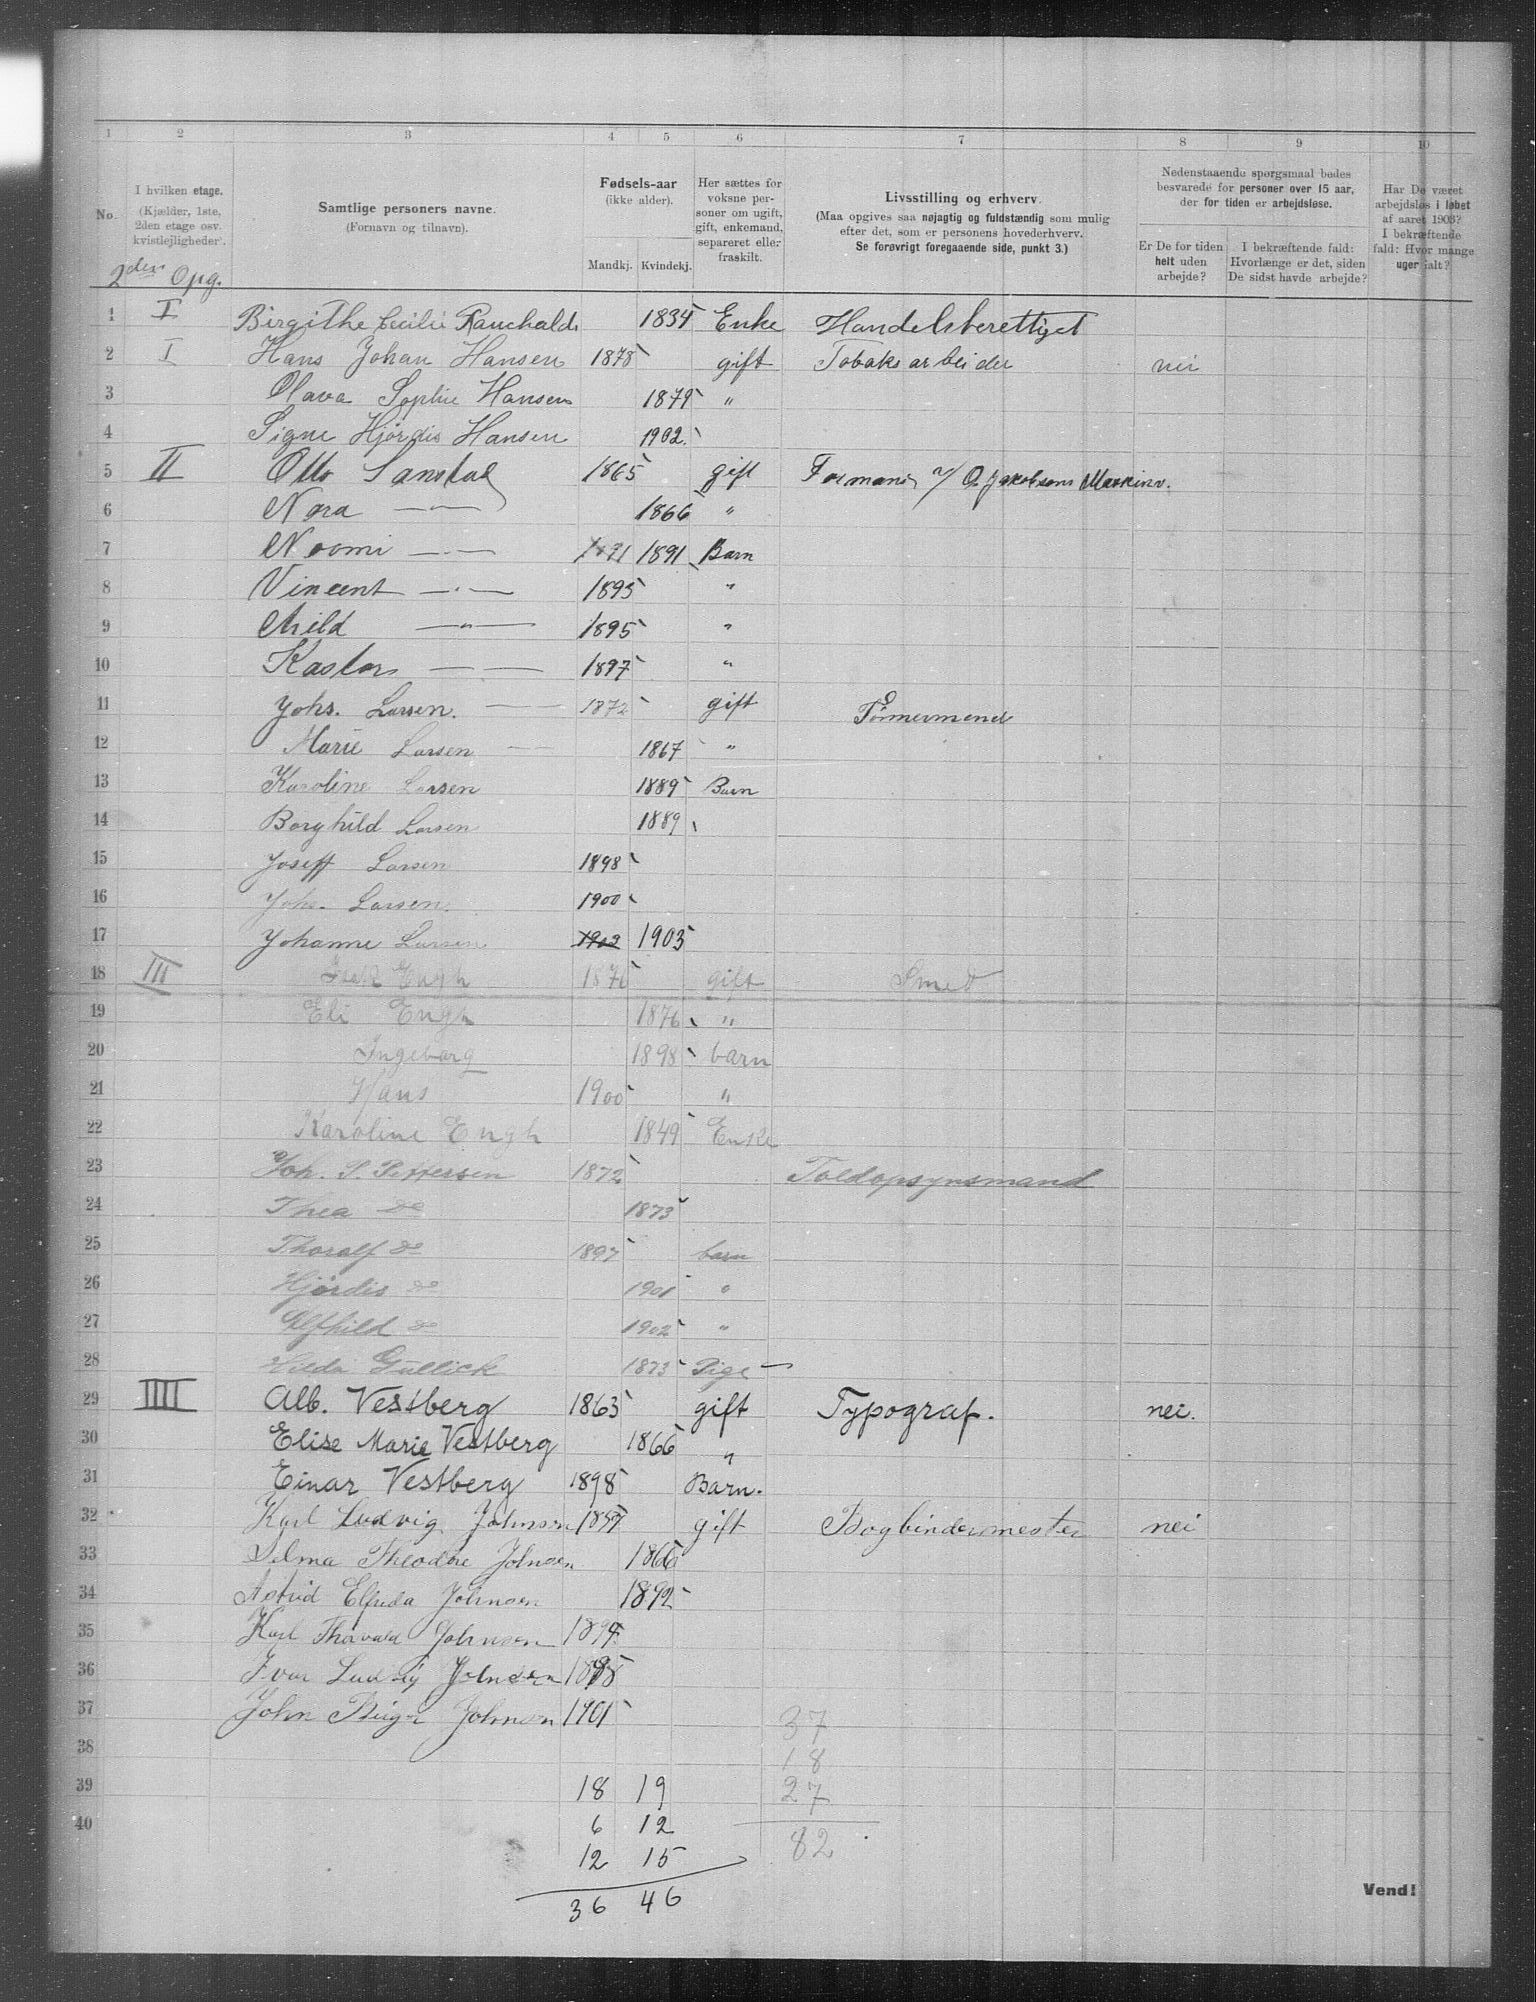 1 2 3 4 5 6 7 8 9 10
No.
I hvilken etage.
(Kjælder, 1ste, 2den etage osv. kvistlejligheder).
Samtlige personers navne.
(Fornavn og tilnavn).
Fødsels-aar
(ikke alder).
Mandkj. Kvindekj.
Her sættes for voksne personer om ugift, gift, enkemand, separeret eller fraskilt.
Livsstilling og erhverv.
(Maa opgives saa nøjagtig og fuldstændig som mulig efter det, som er personens hovederhverv.
Se forøvrigt foregaaende side, punkt 3.)
Nedenstaaende spørgsmaal bedes besvarede for personer over 15 aar, der for tiden er arbejdsløse.
Er De for tiden helt uden arbejde?
I bekræftende fald: Hvorlænge er det, siden De sidst havde arbejde?
Har De været arbejdsløs i løbet af aaret 1903? I bekræftende fald: Hvor mange uger ialt?
2den Opg.
1 I Birgithe Cecilie Rauchald 1834 Enke Handelsberettiget
2 I Hans Johan Hansen 1878 gift Tobaksarbeider nei
3 Olava Sophie Hansen 1879 "
4 Signe Hjørdis Hansen 1902
5 II Otto Sanstad 1865 gift Formand v/ O. Jakobsens Maskinv.
6 Nora —"— 1866 "
7 Noomi —"— 1891 1891 Barn
8 Vincent —"— 1895 "
9 —"— 1895 "
10 — — 1897 "
11 Johs. Larsen. — 1872 gift Tømermend
12 Marie Larsen — — 1867 "
13 Karoline Larsen 1889 Barn
14 Borghild Larsen 1889
15 Joseff Larsen 1898
16 Johs. Larsen. 1900
17 Johanne Larsen 1903 1903
18 III Engh gift Smed
19 Eli Engh 1876 "
20 Ingeborg 1898 barn
21 Hans 1900 "
22 Karoline Engh 1849 Enke
23 Joh. P. Pettersen 1872 Toldopsynsmand
24 Thea do 1873
25 Thoralf do 1897 barn
26 Hjørdis do 1901 "
27 Alfhild do 1902 "
28 Hilda Gullick 1873 Pige —
29 IIII Alb. Vestberg 1863 gift Typograf. nei.
30 Elise Marie Vestberg 1866 "
31 Einar Vestberg 1898 Barn.
32 Karl Ludvig Johnsen 1857 gift Bogbindermester nei
33 Selma Theodore Johnsen 1866
34 Astrid Elfrida Johnsen 1892
35 Karl Thorvald Johnsen 1894
36 Ivar Ludvig Johnsen 1898
37 John Birger Johnsen 1901 37
38 18
39 18 19 27
40 6 12 82
12 15
36 46
Vend!